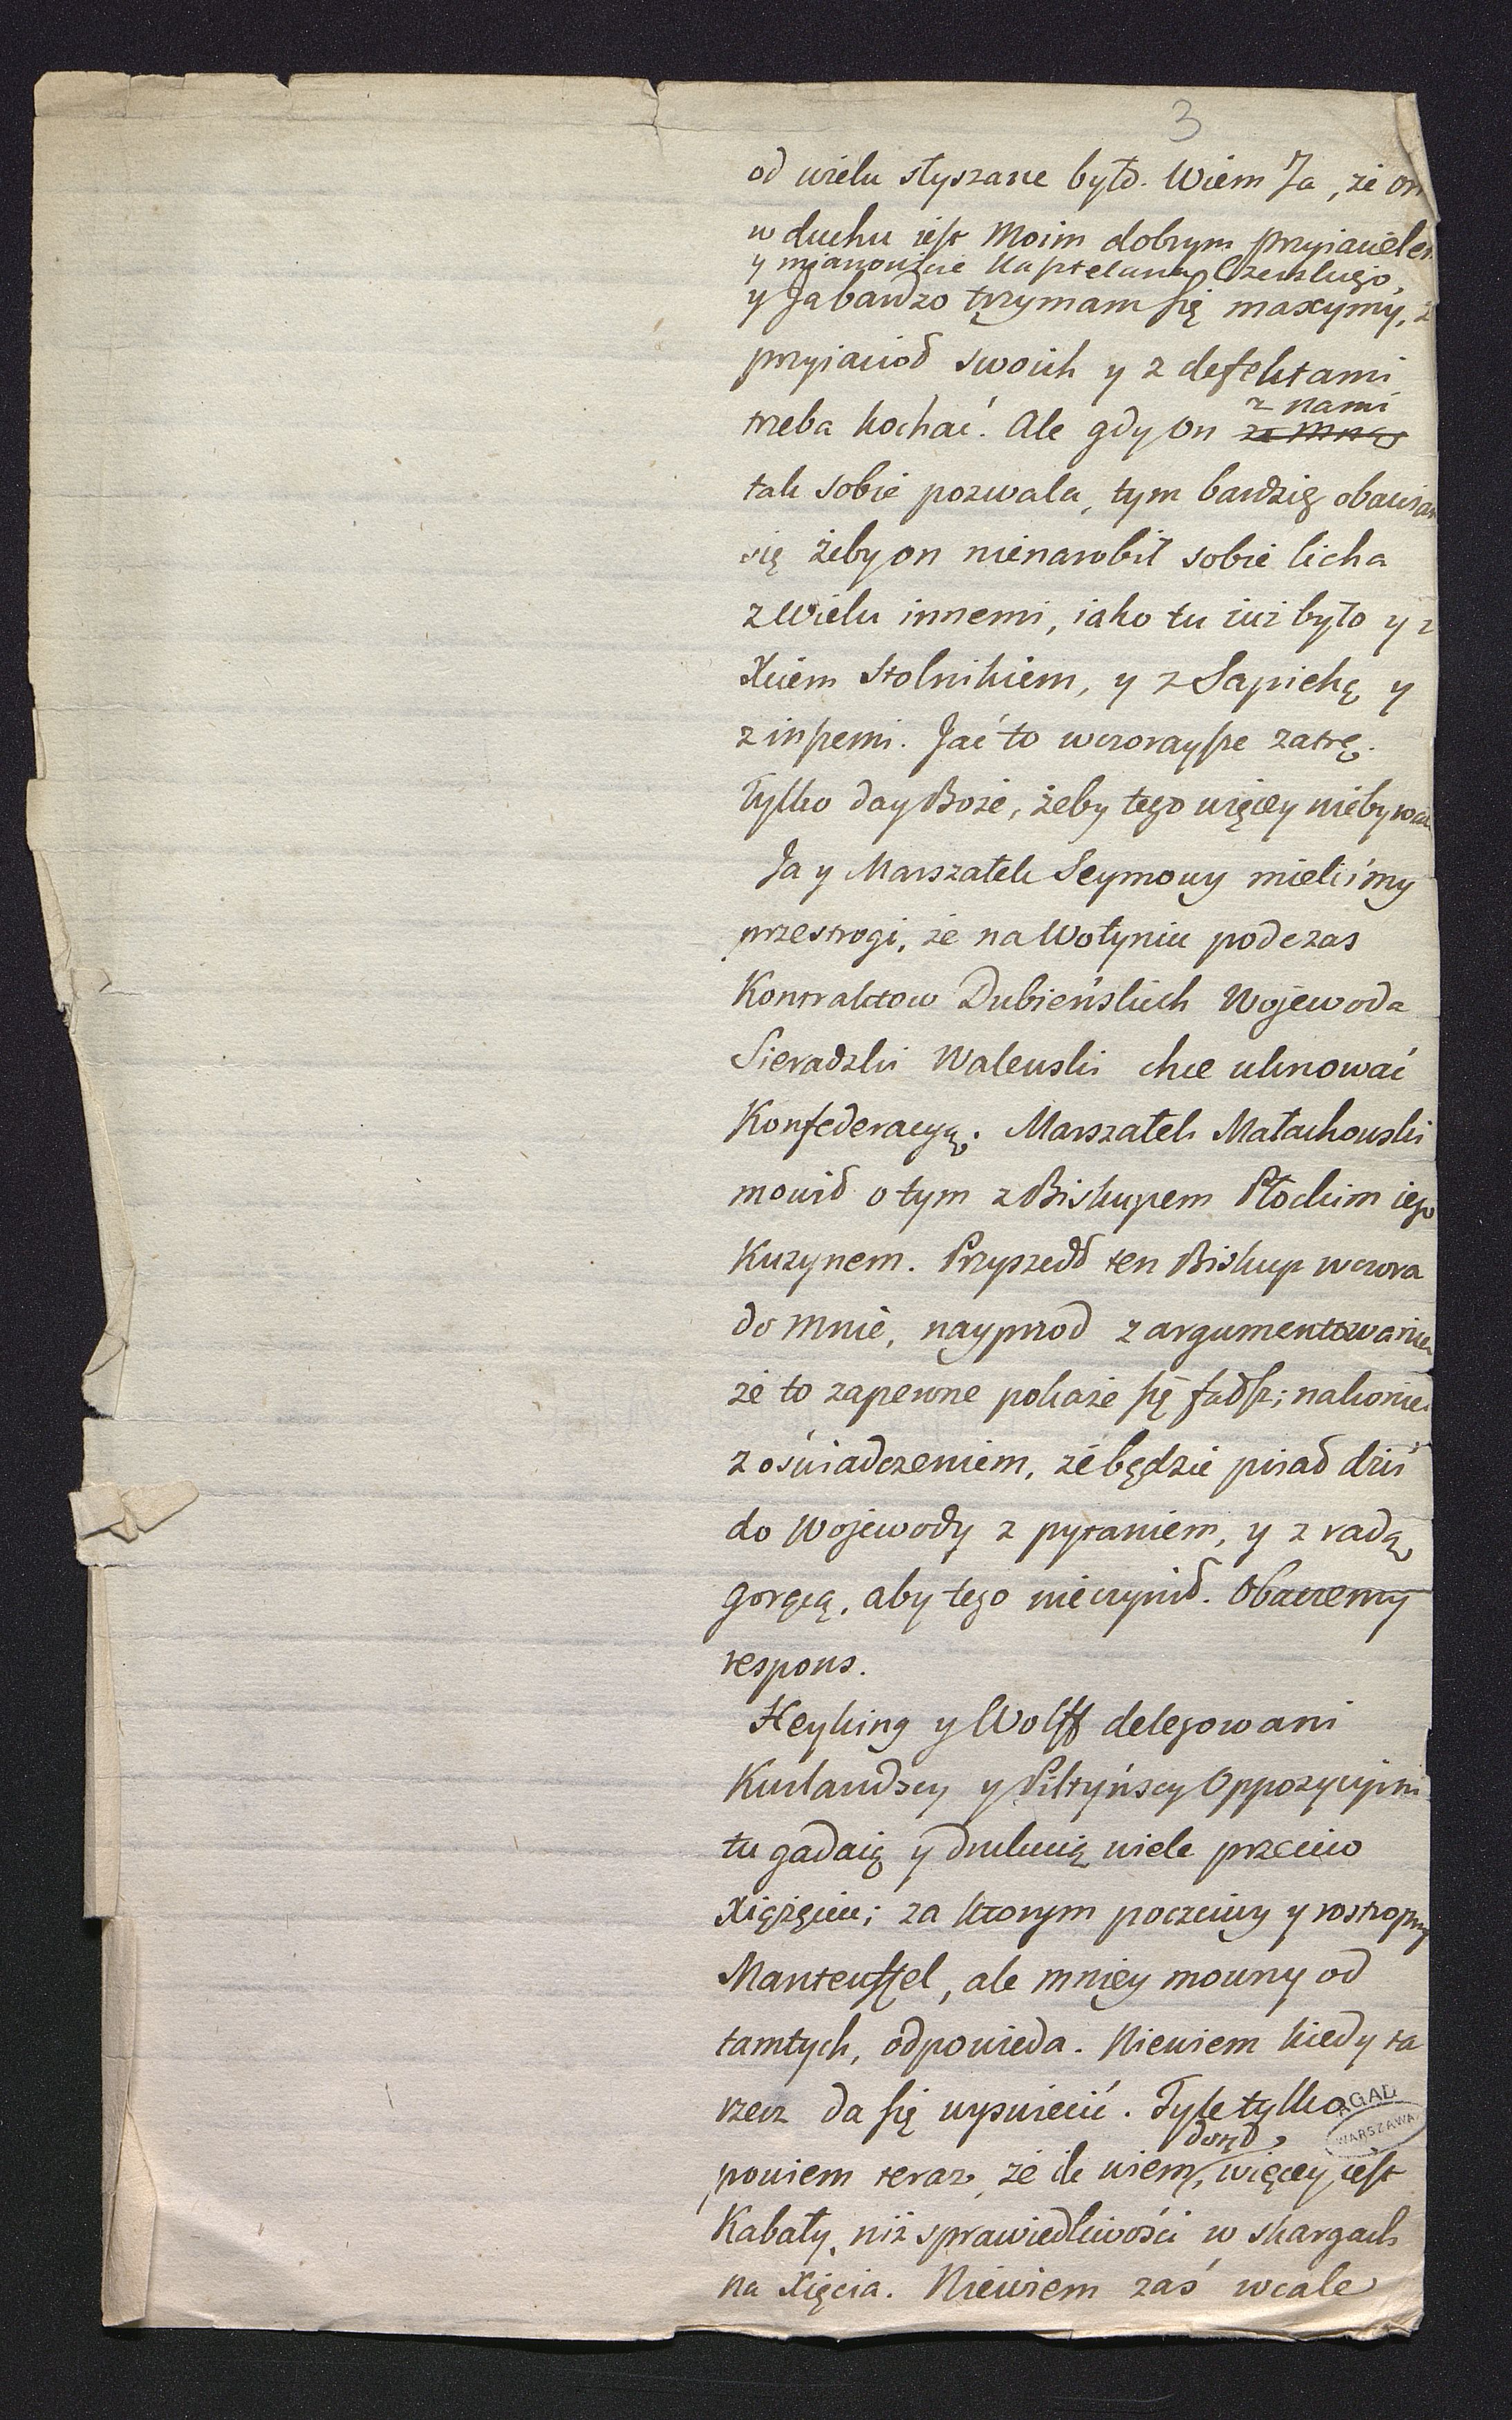 3
od wielu słyszane było. Wiem Ja, że on
w duchu iest Moim dobrym przyiacielem
y mianowicie Kasztelana Czerskiego,
y Ja bardzo trzymam się maxymy, ż
przyiacioł swoich y z defektami
z nami
trzeba kochać. Ale gdy On ze mną
tak sobie pozwala, tym bardziey obawiam
się żeby on nienarobił sobie licha
z wielu innemi, iako tu iuż było y z
Xciem Stolnikiem, y z Sapiehą y
z inszemi. Jać to wczoraysze zatrę.
Tylko day Boże, żeby tego więcey niebywa
Ja y Marszałek Seymowy mieliśmy
przestrogi, że na Wołyniu podczas
Kontraktow Dubieńskich Wojewoda
Sieradzki Walewski chce uknować
Konfederacyą. Marszałek Małachowski
mowił o tym z Biskupem Płockim iego
Kuzynem. Przyszedł ten Biskup wczora
do mnie, nayprzod z argumentowaniem
że to zapewne pokaże się fałsz; nakoniec
z oświadczeniem, że będzie pisał dziś
do Wojewody z pytaniem, y z radą
gorącą, aby tego nieczynił. Obaczemy
respons.
Heyking y Wolff delegowani
Kurlandscy y Piltyńscy Oppozycyini
tu gadaią y drukuią wiele przeciw
Xiążęciu; za ktorym poczciwy y rostropny
Manteuffel, ale mniey mowny od
tamtych, odpowieda. Niewiem kiedy ta
rzecz da się wyświecić. Tyle tylko
dotąd
powiem teraz, że ile wiem, więcey iest
Kabały, niż sprawiedliwości w skargach
na Xięcia. Niewiem zaś wcale
AGAD
WARSZAWA